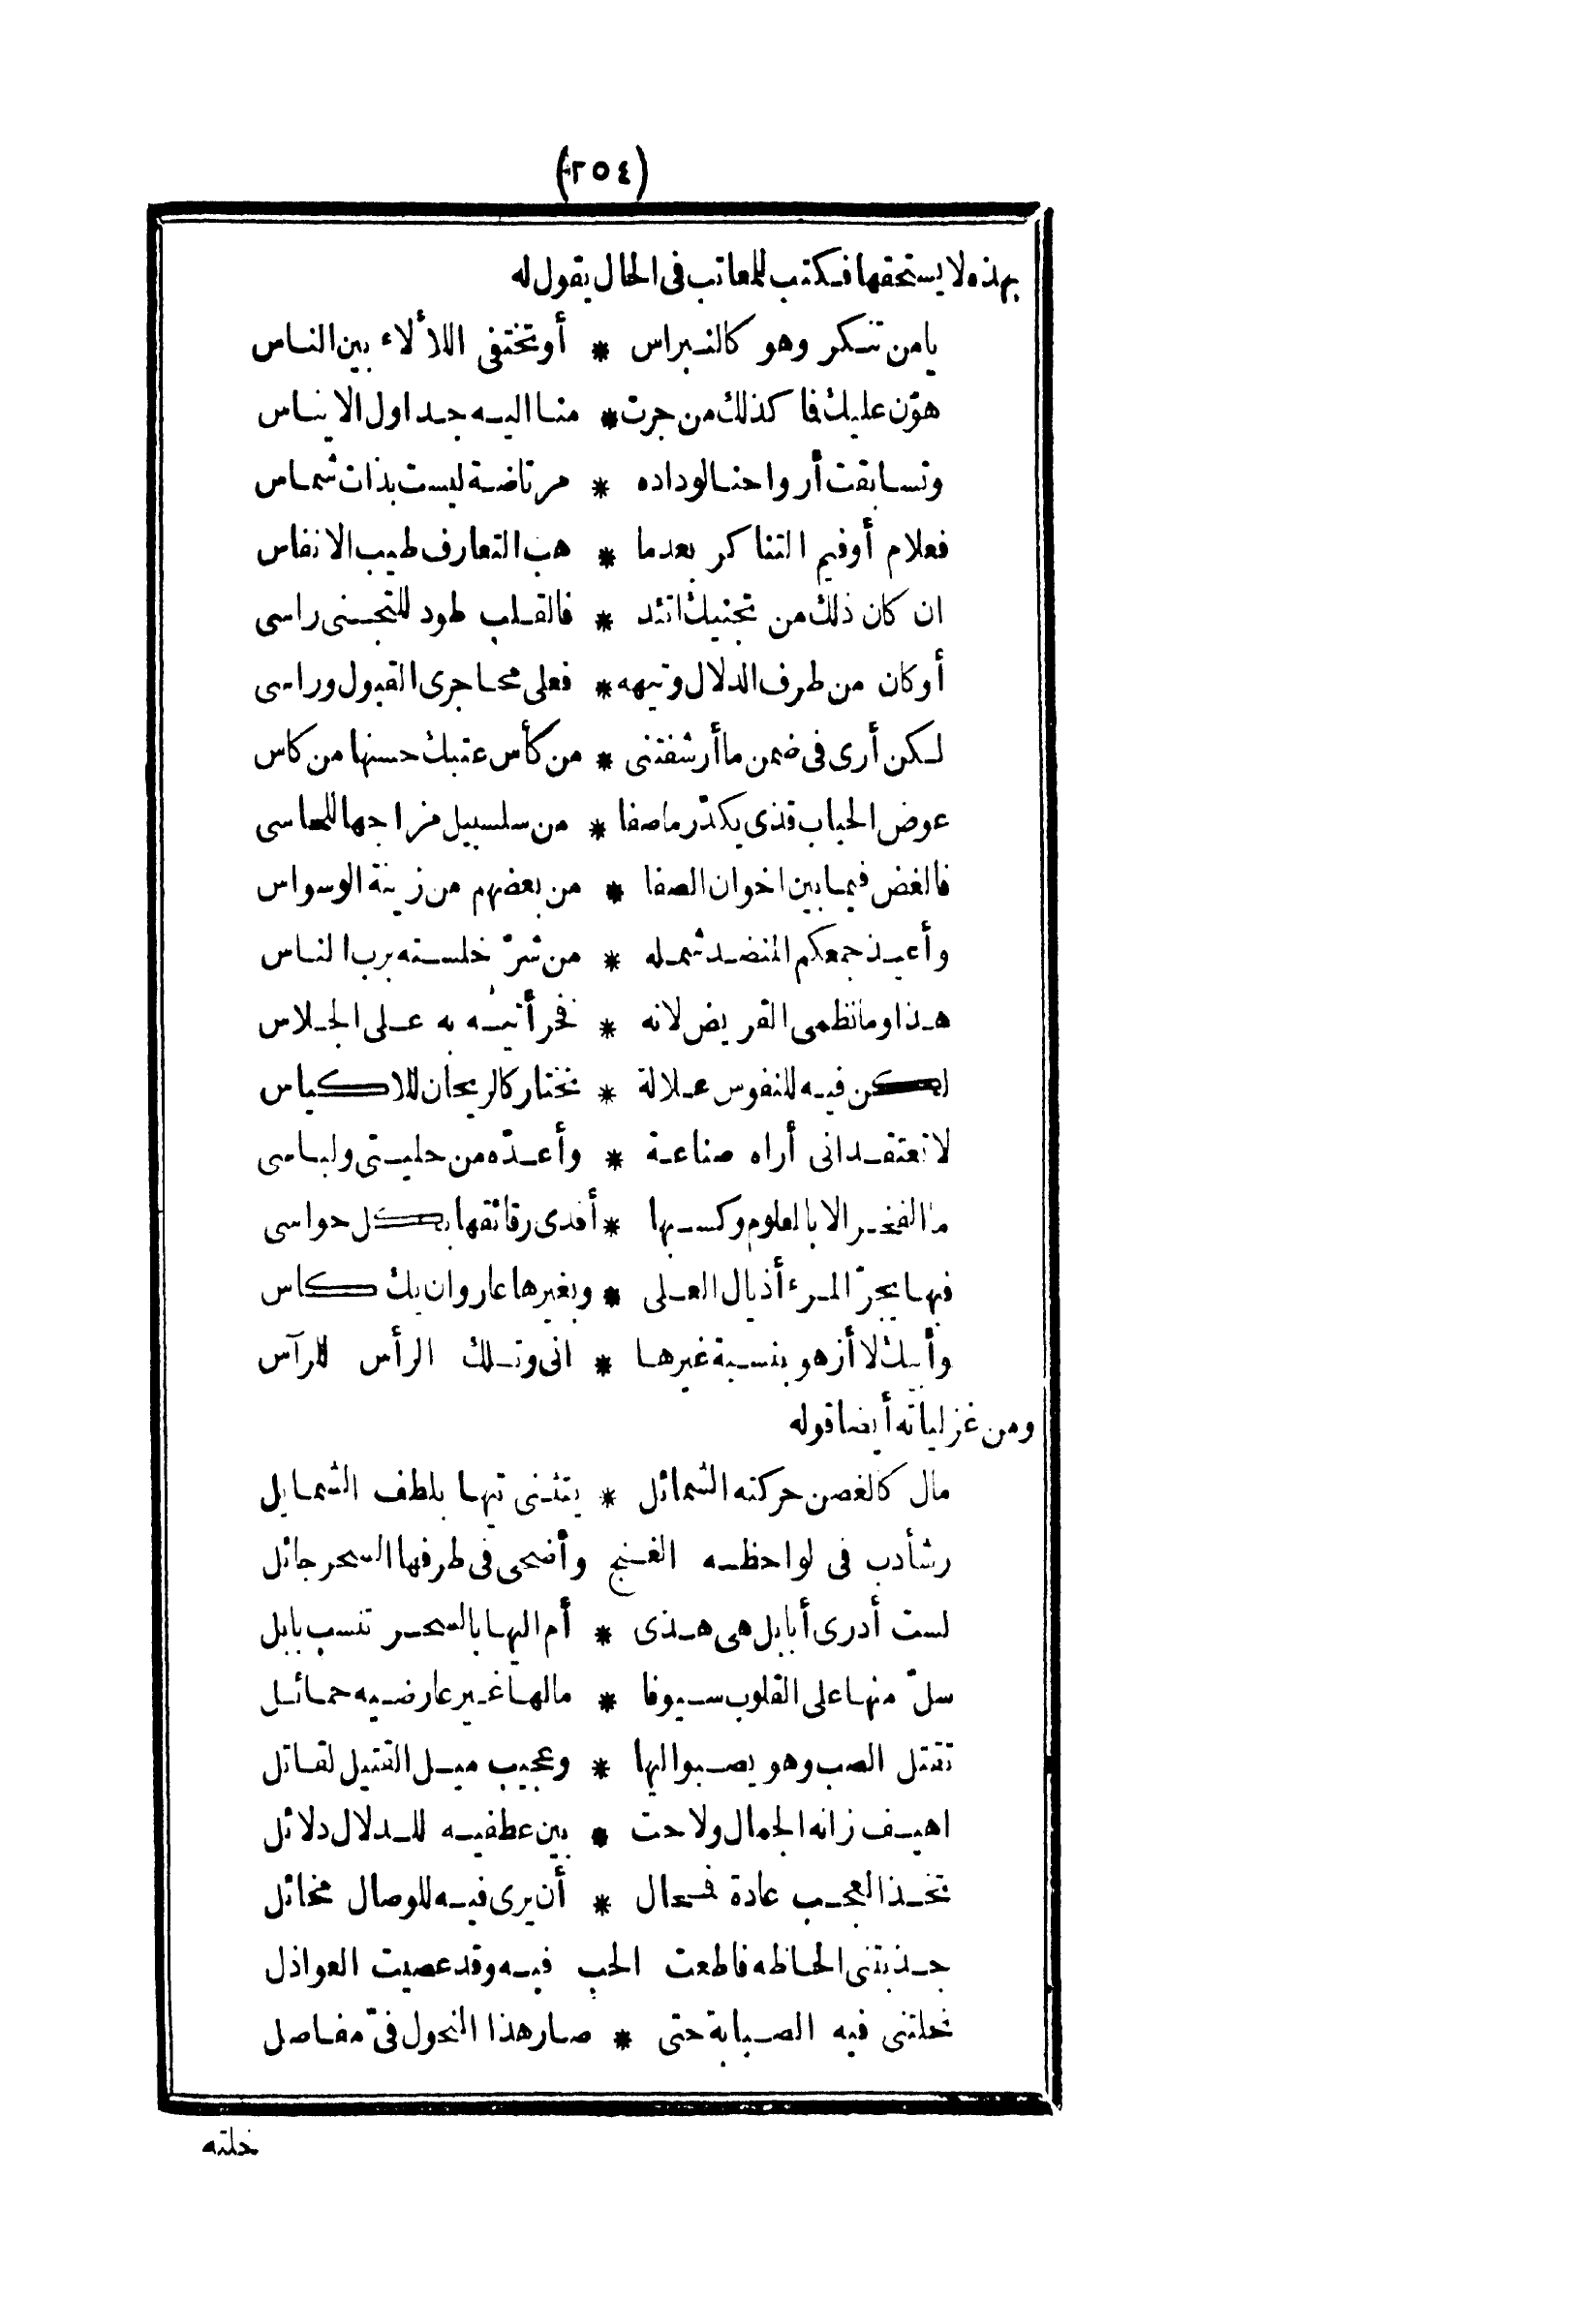 (٢٥٤)
بهذه لا يستحقها فكتب للمعاتب فى الحال يقول له
يا من تنكر وهو كالنبراس * أو تختفى اللألاء بين الناس
هوّن عليك فا كذلك من جرت * منا اليه جداول الايناس
وتسابقت أرواحنا لوداده * مرتاضة ليست بذات شماس
فعلام أو فيم التناكر بعدما * هب التعارف طيب الانفاس
ان كان ذلك من تجنيك اتئد * فالقلب طود للتجنى راسى
أو كان من طرف الدلال وتيهه * فعلى محاجرى القبول وراسى
لكن أرى فى ضمن ما أرشفتنى * من كأس عتبك حسنها من كاس
عوض الحباب قذى يكدّر ما صفا * من سلسبيل مزاجها للحاسى
فالغض فيما بين اخوان الصفا * من بعضهم من زينة الوسواس
وأعيذ جمعكم المنضد شمله * من شرّ خلسته برب الناس
هذا وما نظمى القريض لانه * فخر أتيه به على الجلاس
لكن فيه للنفوس علالة * تختار كالريحان للاكياس
لا تعتقد انى أراه صناعة * وأعدّه من حليتى ولباسى
ما الفخر الا بالعلوم وكسبها * أفدى رقائقها بكل حواسى
فبها يجرّ المرء أذيال العلى * وبغيرها عار وان يك كاس
وأبيك لا أزهو بنسبة غيرها * انى وتلك الرأس للرآس
ومن غزلياته أيضا قوله
مال كالغصن حركته الشمائل * يتثنى تيها بلطف الشمايل
رشأ دب فى لواحظه الغنج وأضحى فى طرفها السحر جائل
لست أدرى أبابل هى هذى * أم اليها بالسحر تنسب بابل
سلّ منها على القلوب سيوفا * ما لها غير عارضيه حمائل
تقتل الصب وهو يصبو اليها * وعجيب ميل القتيل لقاتل
اهيف زانه الجمال ولاحت * بين عطفيه للدلال دلائل
تخذ العجب عادة فمحال * أن يرى فيه للوصال مخائل
جذبتنى الحاظه فاطعت الحب فيه وقد عصيت العواذل
نحلتنى فيه الصبابة حتى * صار هذا النحول فىّ مفاصل
خلته